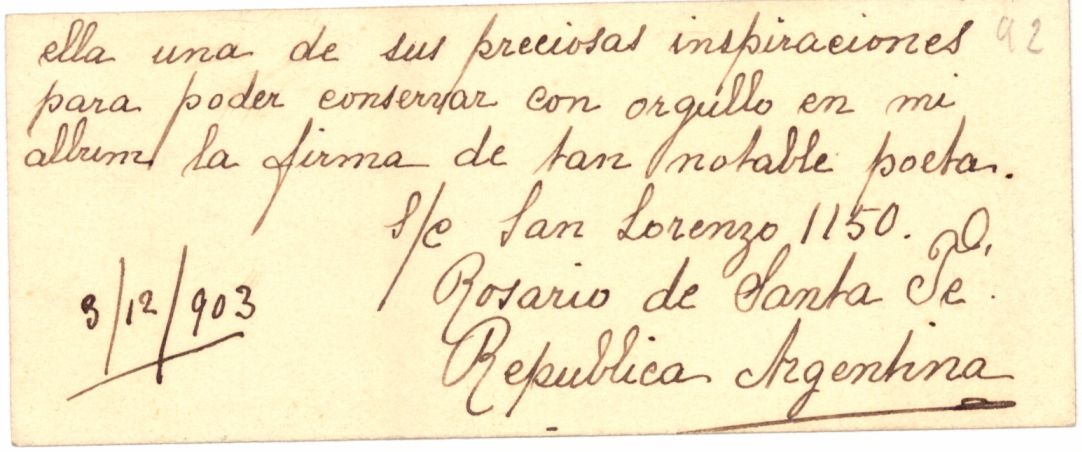 ella una de sus preciosas inspiraciones 92
para poder conservar con orgullo en mi
album la firma de tan notable poeta.
S/c San Lorenzo 1150.
3/12/903
Rosario de Santa Fé.
Republica Argentina